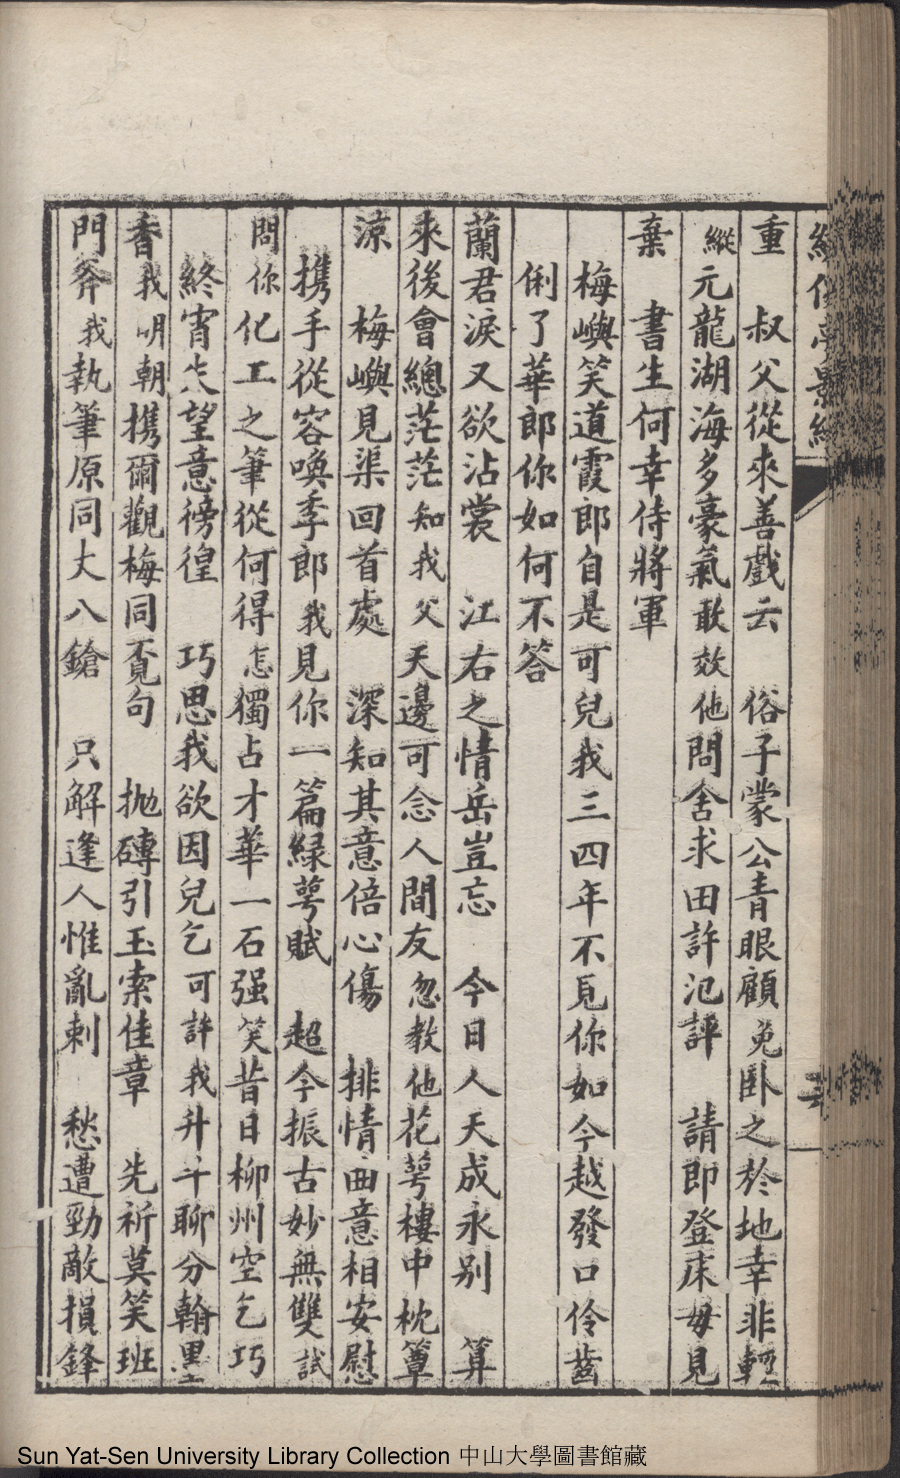 重　叔父從來善戲云　俗子蒙公青眼顧免臥之於地幸非輕
縱元龍湖海多豪氣敢效他問舍求田許汜評　請卽登床毋見
棄　書生何幸侍將軍
梅嶼笑道霞郎自是可兒我三四年不見你如今越發口伶齒
俐了華郎你如何不答
蘭君淚又欲沾裳　江右之情岳豈忘　今日人天成永别　算
來後會總茫茫知我父天邊可念人間友忽教他花萼樓中枕簟
涼　梅嶼見渠回首處　深知其意倍心傷　排情曲意相安慰
攜手從容喚季郎我見你一篇緑萼賦　超今振古妙無雙試
問你化工之筆從何得怎獨占才華一石强笑昔日柳州空乞巧
終宵失望意徬徨　巧思我欲因兒乞可許我升斗聊分翰墨
香我明朝携爾觀梅同覓句　抛磚引玉索佳章　先祈莫笑班
門斧我執筆原同丈八鎗　只解逢人惟亂刺　愁遭勁敵損鋒
Sun Yat-Sen University Library Collection 中山大學圖書館藏